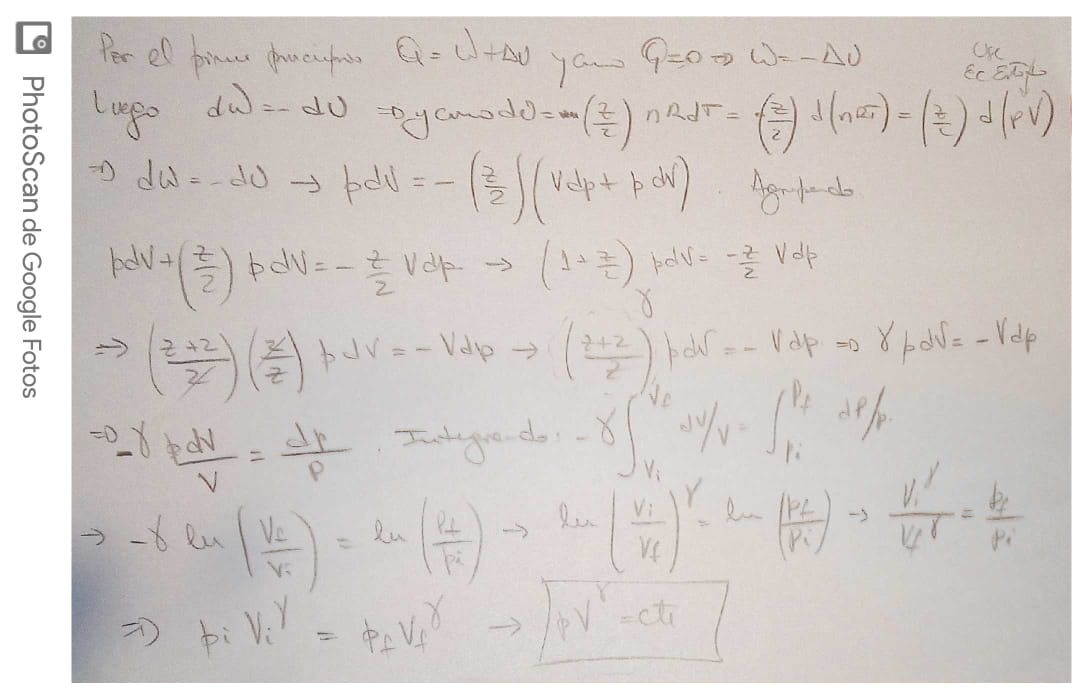 PhotoScan de Google Fotos
Por el primer principio Q = W + ΔU y como Q=0 ⇒ W=-ΔU
Use
Ec Estado
Luego dW = - dU ⇒ y como dU = (z/2) nRdT = (z/2) d(nRT) = (z/2) d(pV)
⇒ dW = - dU → pdV = - (z/2)(Vdp + pdV). Agrupando
pdV + (z/2) pdV = - z/2 Vdp → (1 + z/2) pdV = - z/2 Vdp
⇒ (z+2/2)(2/z) pdV = - Vdp → (z+2/z) pdV = - Vdp ⇒ γpdV = - Vdp
γ
⇒ -γ dV/V = dp/p. Integrando: -γ∫Vi Vf dV/V = ∫pi Pf dP/p.
→ -γ ln (Vf/Vi) = ln (Pf/pi) → ln (Vi/Vf)^γ = ln (pf/pi) → Vi^γ/Vf^γ = pf/pi
⇒ pi Vi^γ = pf Vf^γ → pV^γ = cte